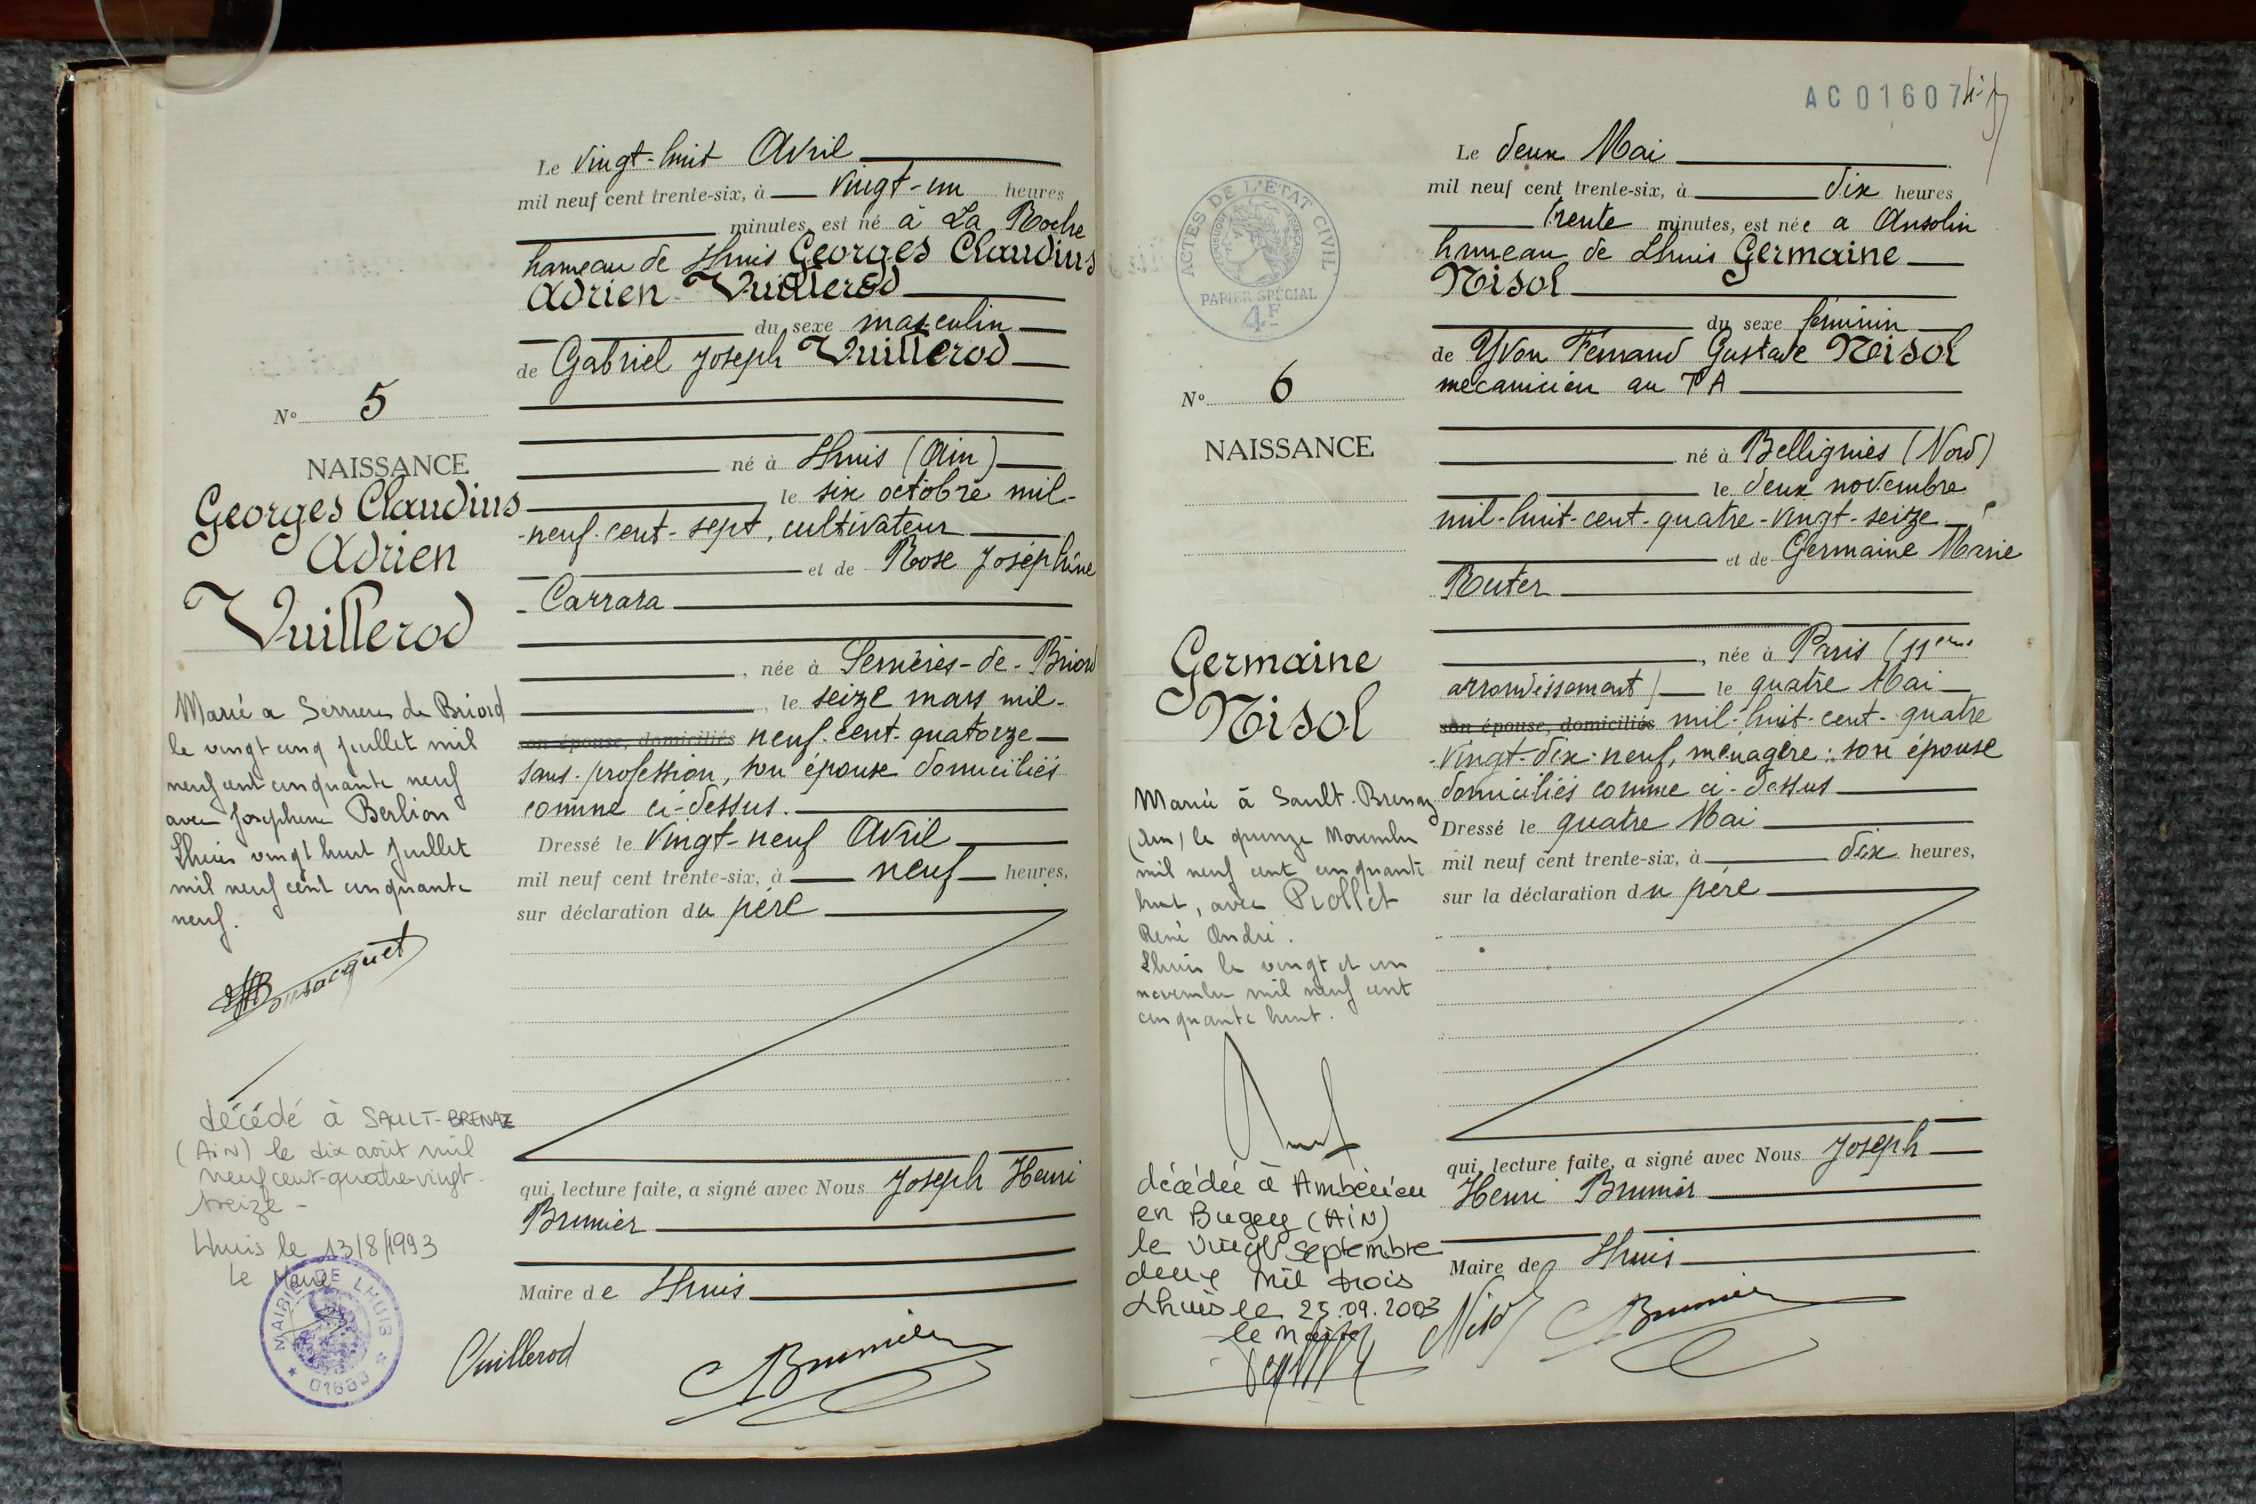 Le vingt-huit Avril
mil neuf cent trente-six, à vingt-un heures
minutes, est né à La Roche
hameau de Lhuis Georges Claudius
Adrien Vuillerod
du sexe masculin
de Gabriel Joseph Vuillerod
né à Lhuis (Ain)
le six octobre mil-
-neuf-cent-sept, cultivateur
et de Rose Joséphine
- Carrara
, née à Serrières-de-Briord
, le seize mars mil-
son épouse, domiciliés neuf-cent-quatorze
sans-profession, son épouse domiciliés
comme ci-dessus.
Dressé le vingt-neuf Avril
mil neuf cent trente-six, à neuf heures,
sur déclaration du père
qui, lecture faite, a signé avec Nous Joseph Henri
Brunier
Maire de Lhuis
Vuillerod
Brunier
No 5
NAISSANCE
Georges Claudius
Adrien
Vuillerod
Marié a Serrieres de Briord
le vingt cinq juillet mil
neuf cent cinquante neuf
avec Josephine Berlion
Lhuis vingt huit juillet
mil neuf cent cinquante
neuf.
décédé à SAULT-BRENAZ
(AiN) le dix août mil
neuf cent-quatre-vingt-
treize -
Lhuis le 13/8/1993
Le Maire
MAIRIE DE LHUIS
AC01607
Le deux Mai
mil neuf cent trente-six, à dix heures
trente minutes, est née a Ansolin
hameau de Lhuis Germaine
Nisol
du sexe féminin
de Yvon Fernand Gustave Nisol
mecanicien au TA
né à Bellignies (Nord)
le deux novembre
mil-huit-cent-quatre-vingt-seize
et de Germaine Marie
Ruter
, née à Paris (11eme
arrondissement) le quatre Mai
son épouse, domiciliés mil-huit-cent-quatre
-vingt-dix-neuf, ménagère : son épouse
domiciliés comme ci-dessus
Dressé le quatre Mai
mil neuf cent trente-six, à dix heures,
sur la déclaration du père
qui, lecture faite, a signé avec Nous Joseph
Henri Brunier
Maire de Lhuis
Nisol
Brunier
ACTES DE L'ÉTAT CIVIL
RÉPUBLIQUE FRANÇAISE
PAPIER SPÉCIAL
4F
No 6
NAISSANCE
Germaine
Nisol
Marié à Sault-Brenaz
(Ain) le quinze Novembre
mil neuf cent cinquante
huit, avec Piollet
René André.
Lhuis le vingt et un
novembre mil neuf cent
cinquante huit.
décédée à Ambérieu
en Bugey (AiN)
le vingt septembre
deux mil trois
Lhuis le 25.09.2003
le Maire